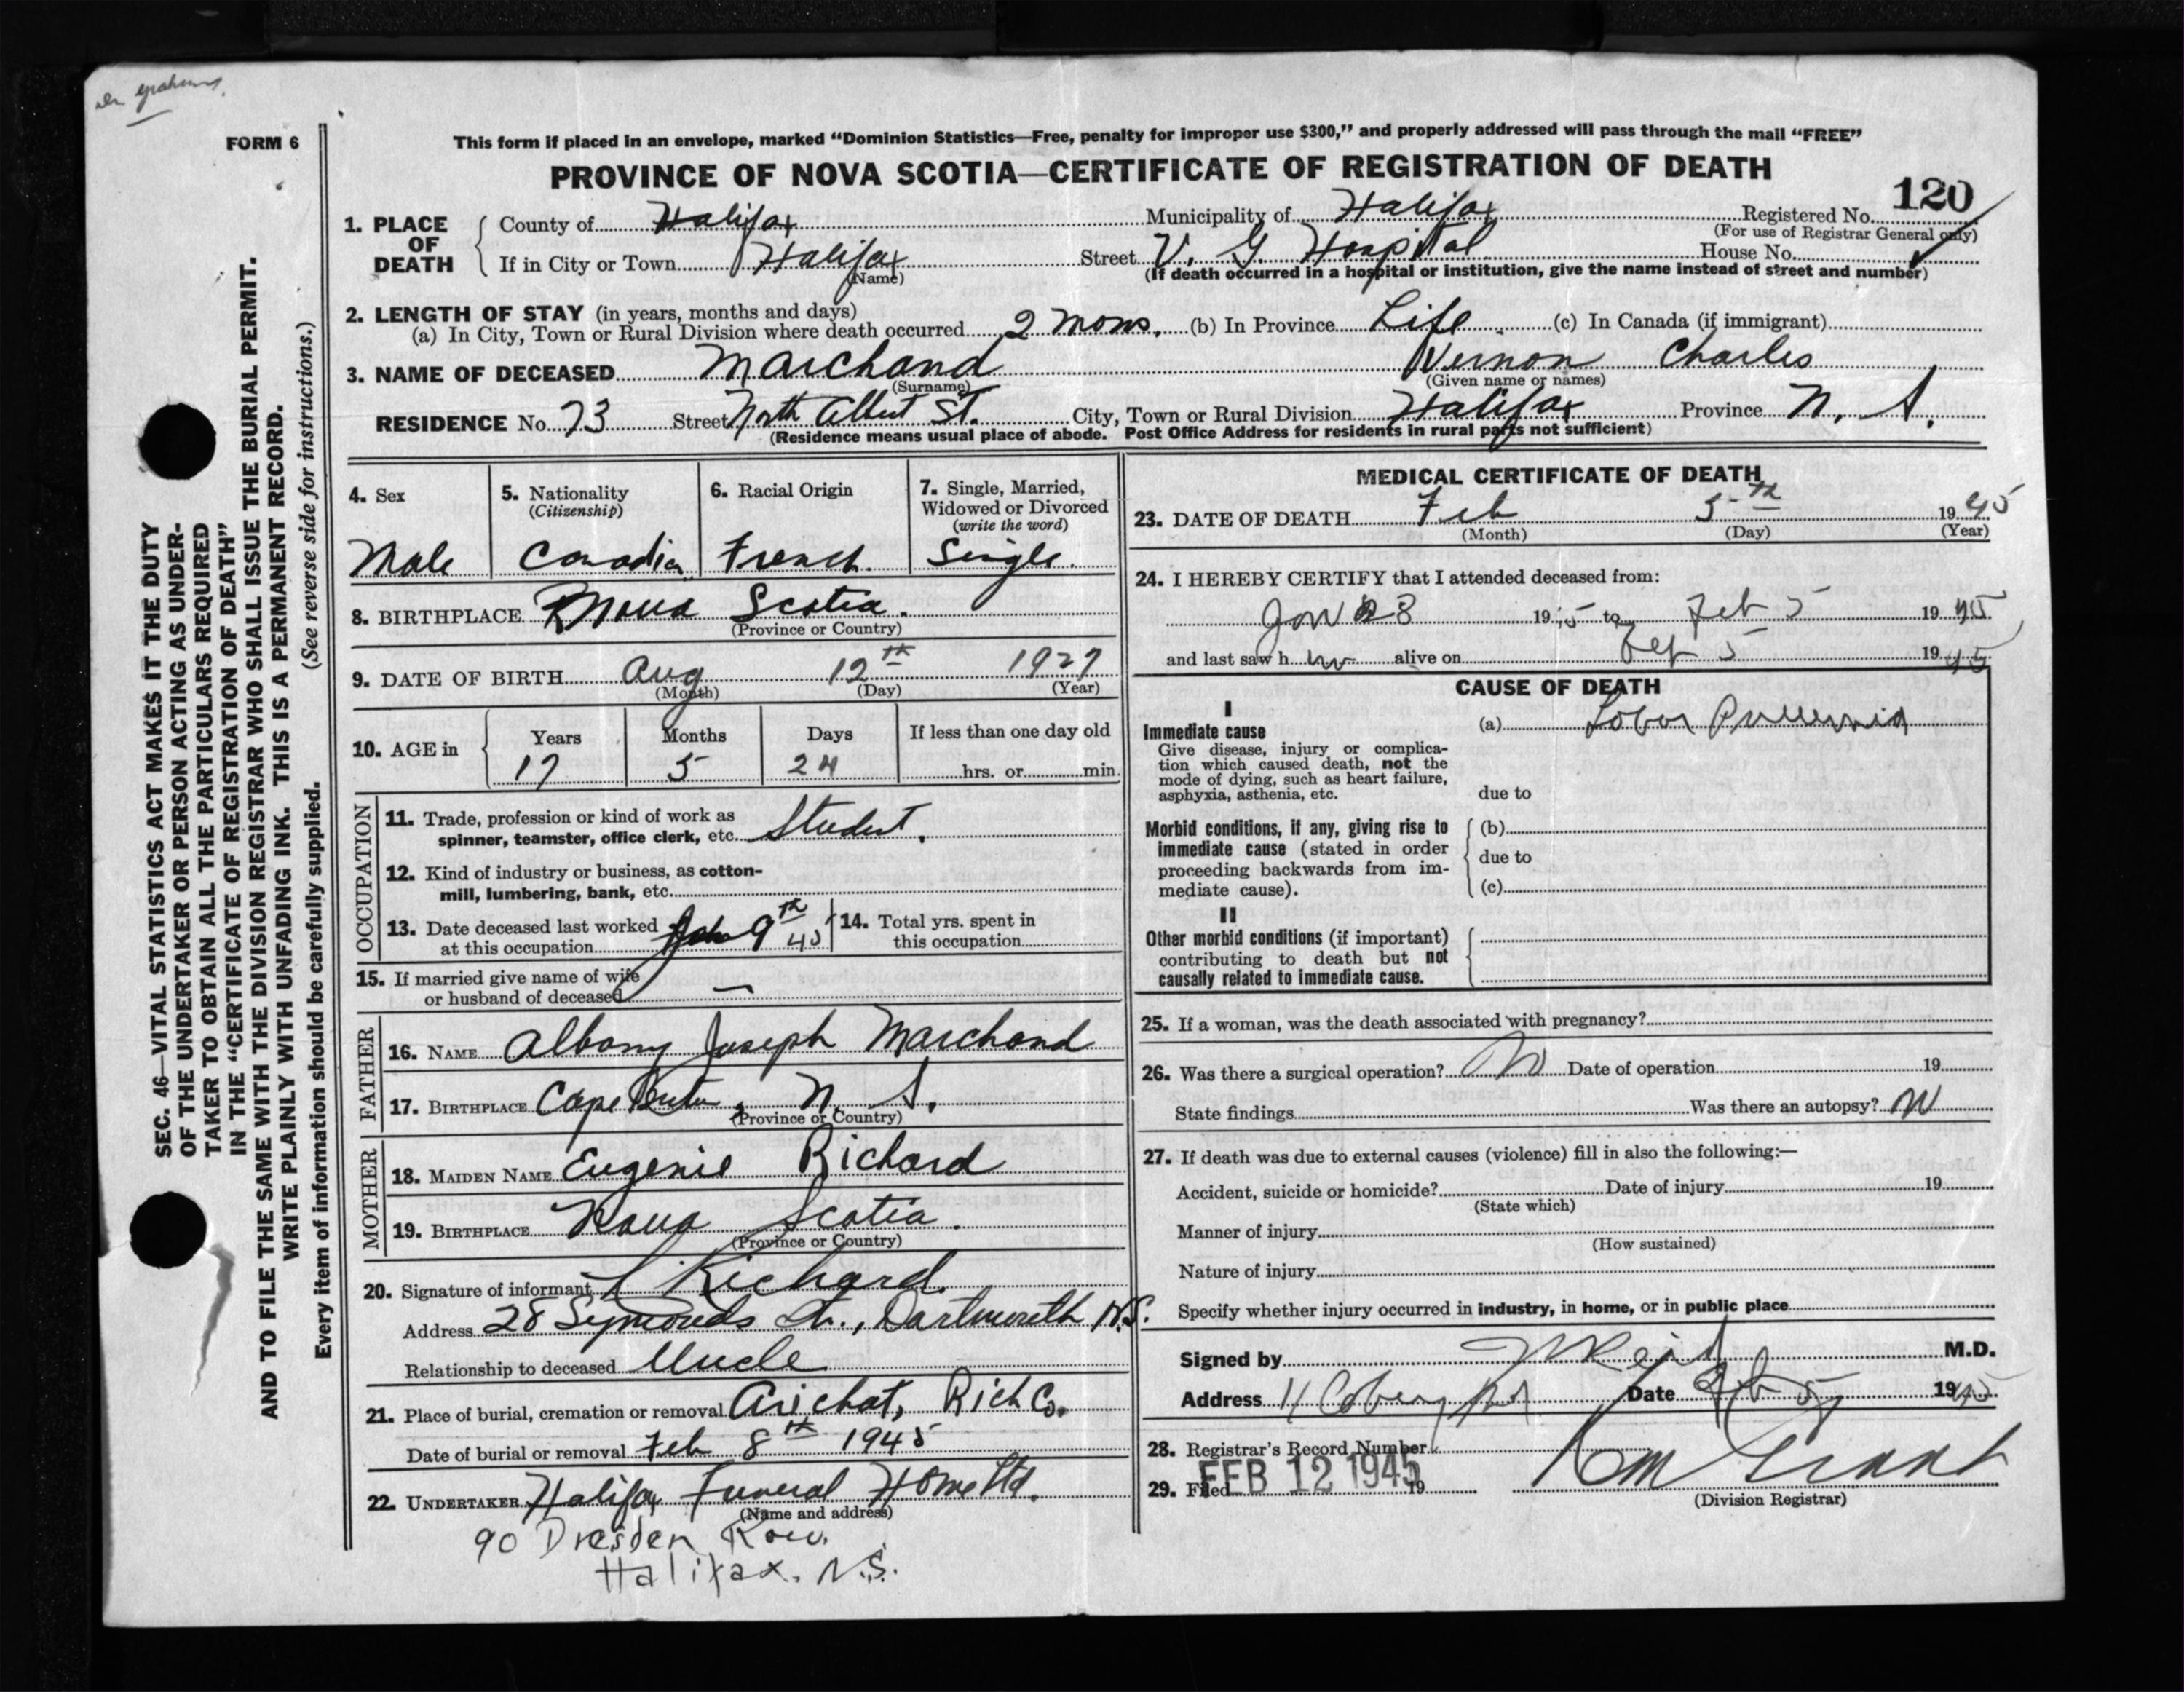 FORM 6
This form if placed in an envelope, marked “Dominion Statistics—Free, penalty for improper use $300,” and properly addressed will pass through the mail “FREE”
PROVINCE OF NOVA SCOTIA—CERTIFICATE OF REGISTRATION OF DEATH
120
1. PLACE OF DEATH
County of Halifax Municipality of Halifax Registered No.
(For use of Registrar General only)
If in City or Town Halifax Street V. G. Hospital House No.
(Name) (If death occurred in a hospital or institution, give the name instead of street and number)
2. LENGTH OF STAY (in years, months and days)
(a) In City, Town or Rural Division where death occurred 2 mons. (b) In Province Life. (c) In Canada (if immigrant)
3. NAME OF DECEASED Marchand Vernon Charles
(Surname) (Given name or names)
RESIDENCE No. 73 Street North Albert St. City, Town or Rural Division Halifax Province N. S.
(Residence means usual place of abode. Post Office Address for residents in rural parts not sufficient)
4. Sex
Male
5. Nationality
(Citizenship)
Canadian
6. Racial Origin
French.
7. Single, Married,
Widowed or Divorced
(write the word)
Single.
8. BIRTHPLACE Nova Scotia.
(Province or Country)
9. DATE OF BIRTH Aug 12th 1927
(Month) (Day) (Year)
10. AGE in
Years Months Days If less than one day old
17 5 24 hrs. or min.
OCCUPATION
11. Trade, profession or kind of work as
spinner, teamster, office clerk, etc. Student.
12. Kind of industry or business, as cotton-
mill, lumbering, bank, etc.
13. Date deceased last worked
at this occupation 9th 45
14. Total yrs. spent in
this occupation
15. If married give name of wife
or husband of deceased —
FATHER
16. NAME Albany Joseph Marchand
17. BIRTHPLACE Cape Breton, N. S.
(Province or Country)
MOTHER
18. MAIDEN NAME Eugenie Richard
19. BIRTHPLACE Nova Scotia.
(Province or Country)
20. Signature of informant Richard.
Address 28 Symonds St., Dartmouth N.S.
Relationship to deceased Uncle
21. Place of burial, cremation or removal Arichat, Rich Co.
Date of burial or removal Feb 8th 1945
22. UNDERTAKER Halifax Funeral Home Ltd.
(Name and address)
90 Dresden Row.
Halifax. N.S.
MEDICAL CERTIFICATE OF DEATH
23. DATE OF DEATH Feb 5th 1945
(Month) (Day) (Year)
24. I HEREBY CERTIFY that I attended deceased from:
Jan 28 19 45 to Feb 5 19 45
and last saw h im alive on Feb 5 19 45
CAUSE OF DEATH
I
Immediate cause
Give disease, injury or complica-
tion which caused death, not the
mode of dying, such as heart failure,
asphyxia, asthenia, etc.
(a) Lobar Pneumonia
due to
Morbid conditions, if any, giving rise to
immediate cause (stated in order
proceeding backwards from im-
mediate cause).
(b)
due to
(c)
II
Other morbid conditions (if important)
contributing to death but not
causally related to immediate cause.
25. If a woman, was the death associated with pregnancy?
26. Was there a surgical operation? No Date of operation 19
State findings Was there an autopsy? No
27. If death was due to external causes (violence) fill in also the following:—
Accident, suicide or homicide? Date of injury 19
(State which)
Manner of injury
(How sustained)
Nature of injury
Specify whether injury occurred in industry, in home, or in public place
Signed by M.D.
Address 11 Coburg Rd Date Feb 5 1945
28. Registrar's Record Number
29. Filed FEB 12 1945 19
(Division Registrar)
SEC. 46—VITAL STATISTICS ACT MAKES IT THE DUTY
OF THE UNDERTAKER OR PERSON ACTING AS UNDER-
TAKER TO OBTAIN ALL THE PARTICULARS REQUIRED
IN THE “CERTIFICATE OF REGISTRATION OF DEATH”
AND TO FILE THE SAME WITH THE DIVISION REGISTRAR WHO SHALL ISSUE THE BURIAL PERMIT.
WRITE PLAINLY WITH UNFADING INK. THIS IS A PERMANENT RECORD.
(See reverse side for instructions.)
Every item of information should be carefully supplied.